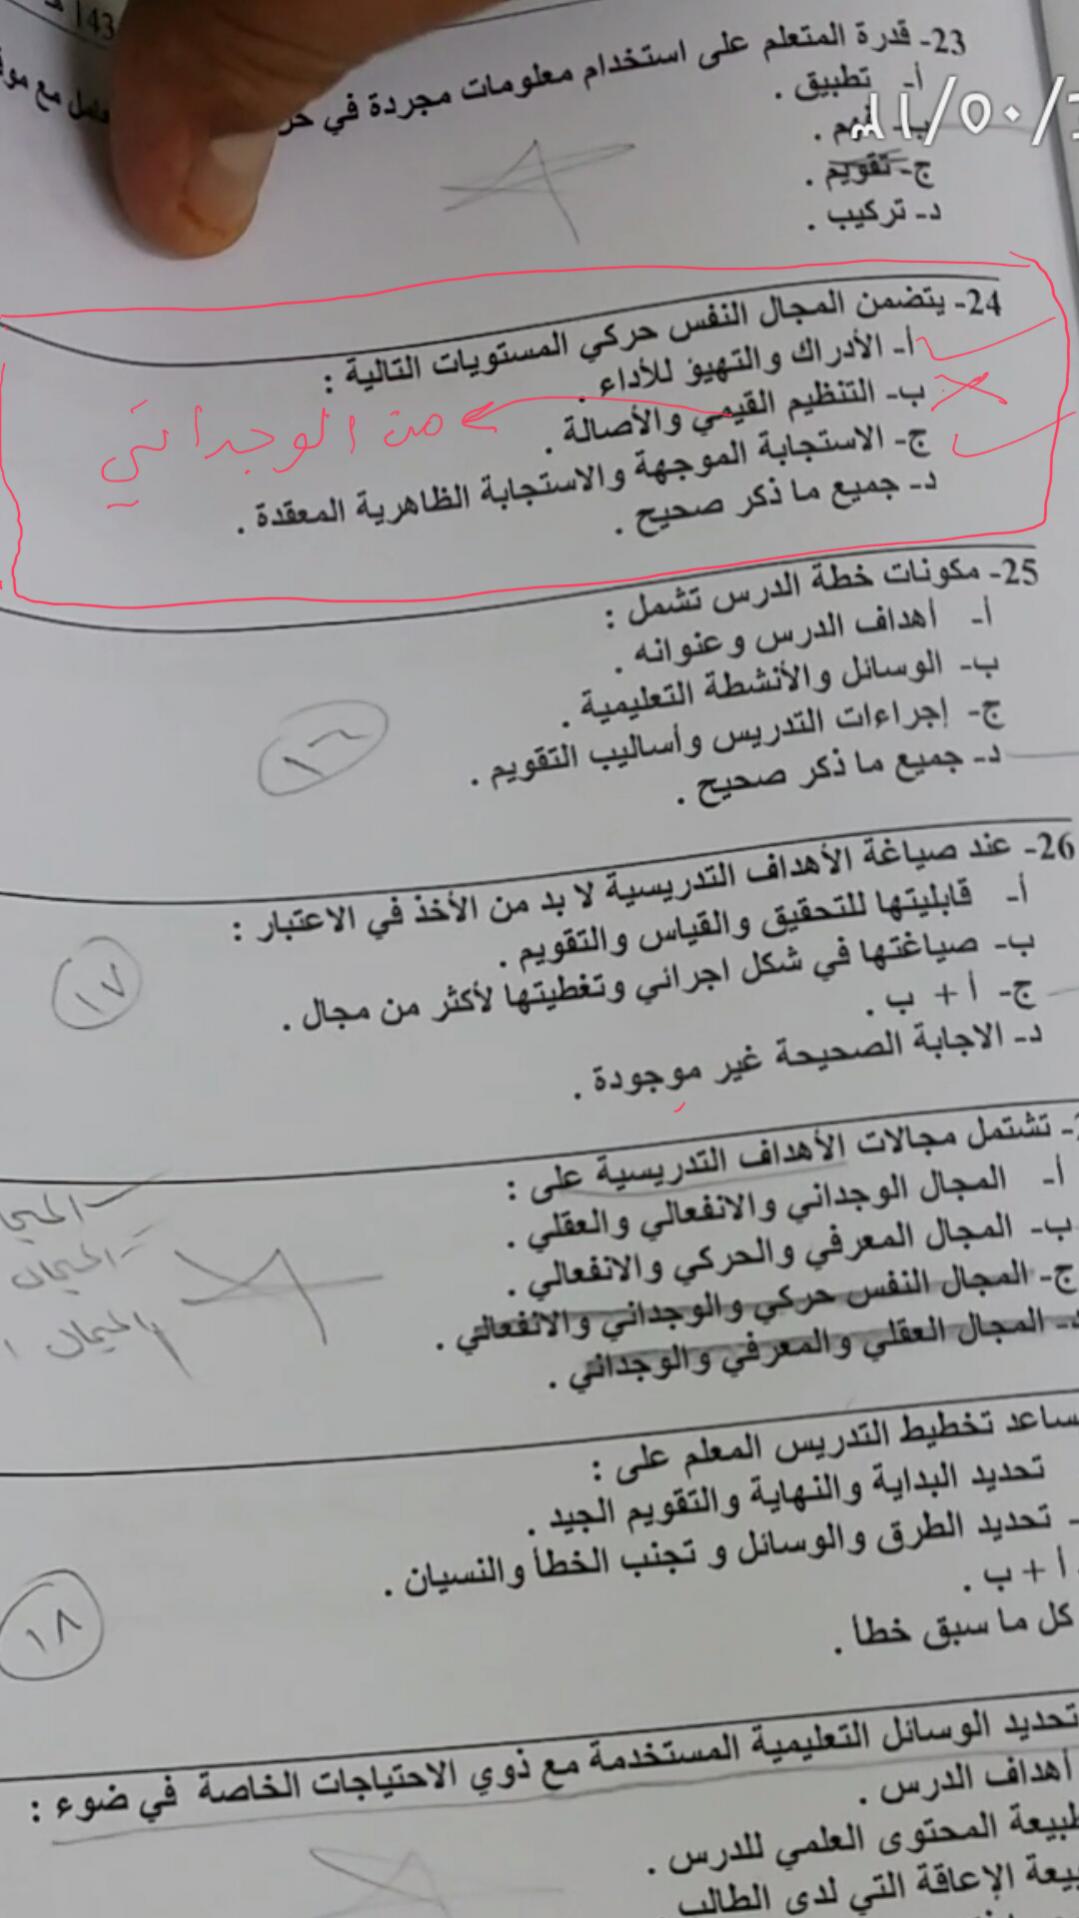 23- قدرة المتعلم على استخدام معلومات مجردة في
أ- تطبيق .
ج- تقويم .
د- تركيب .
24- يتضمن المجال النفس حركي المستويات التالية :
أ- الأدراك والتهيؤ للأداء .
ب- التنظيم القيمي والأصالة .
من الوجداني
ج- الاستجابة الموجهة والاستجابة الظاهرية المعقدة .
د- جميع ما ذكر صحيح .
25- مكونات خطة الدرس تشمل :
أ- أهداف الدرس وعنوانه .
ب- الوسائل والأنشطة التعليمية .
ج- إجراءات التدريس وأساليب التقويم .
١٦
د- جميع ما ذكر صحيح .
26- عند صياغة الأهداف التدريسية لا بد من الأخذ في الاعتبار :
أ- قابليتها للتحقيق والقياس والتقويم .
ب- صياغتها في شكل اجرائي وتغطيتها لأكثر من مجال .
١٧
ج- أ + ب .
د- الاجابة الصحيحة غير موجودة .
- تشتمل مجالات الأهداف التدريسية على :
أ- المجال الوجداني والانفعالي والعقلي .
ب- المجال المعرفي والحركي والانفعالي .
ج- المجال النفس حركي والوجداني والانفعالي .
المجال العقلي والمعرفي والوجداني .
ساعد تخطيط التدريس المعلم على :
تحديد البداية والنهاية والتقويم الجيد .
- تحديد الطرق والوسائل و تجنب الخطأ والنسيان .
أ + ب .
١٨
كل ما سبق خطأ .
تحديد الوسائل التعليمية المستخدمة مع ذوي الاحتياجات الخاصة في ضوء :
أهداف الدرس .
طبيعة المحتوى العلمي للدرس .
الإعاقة التي لدى الطالب